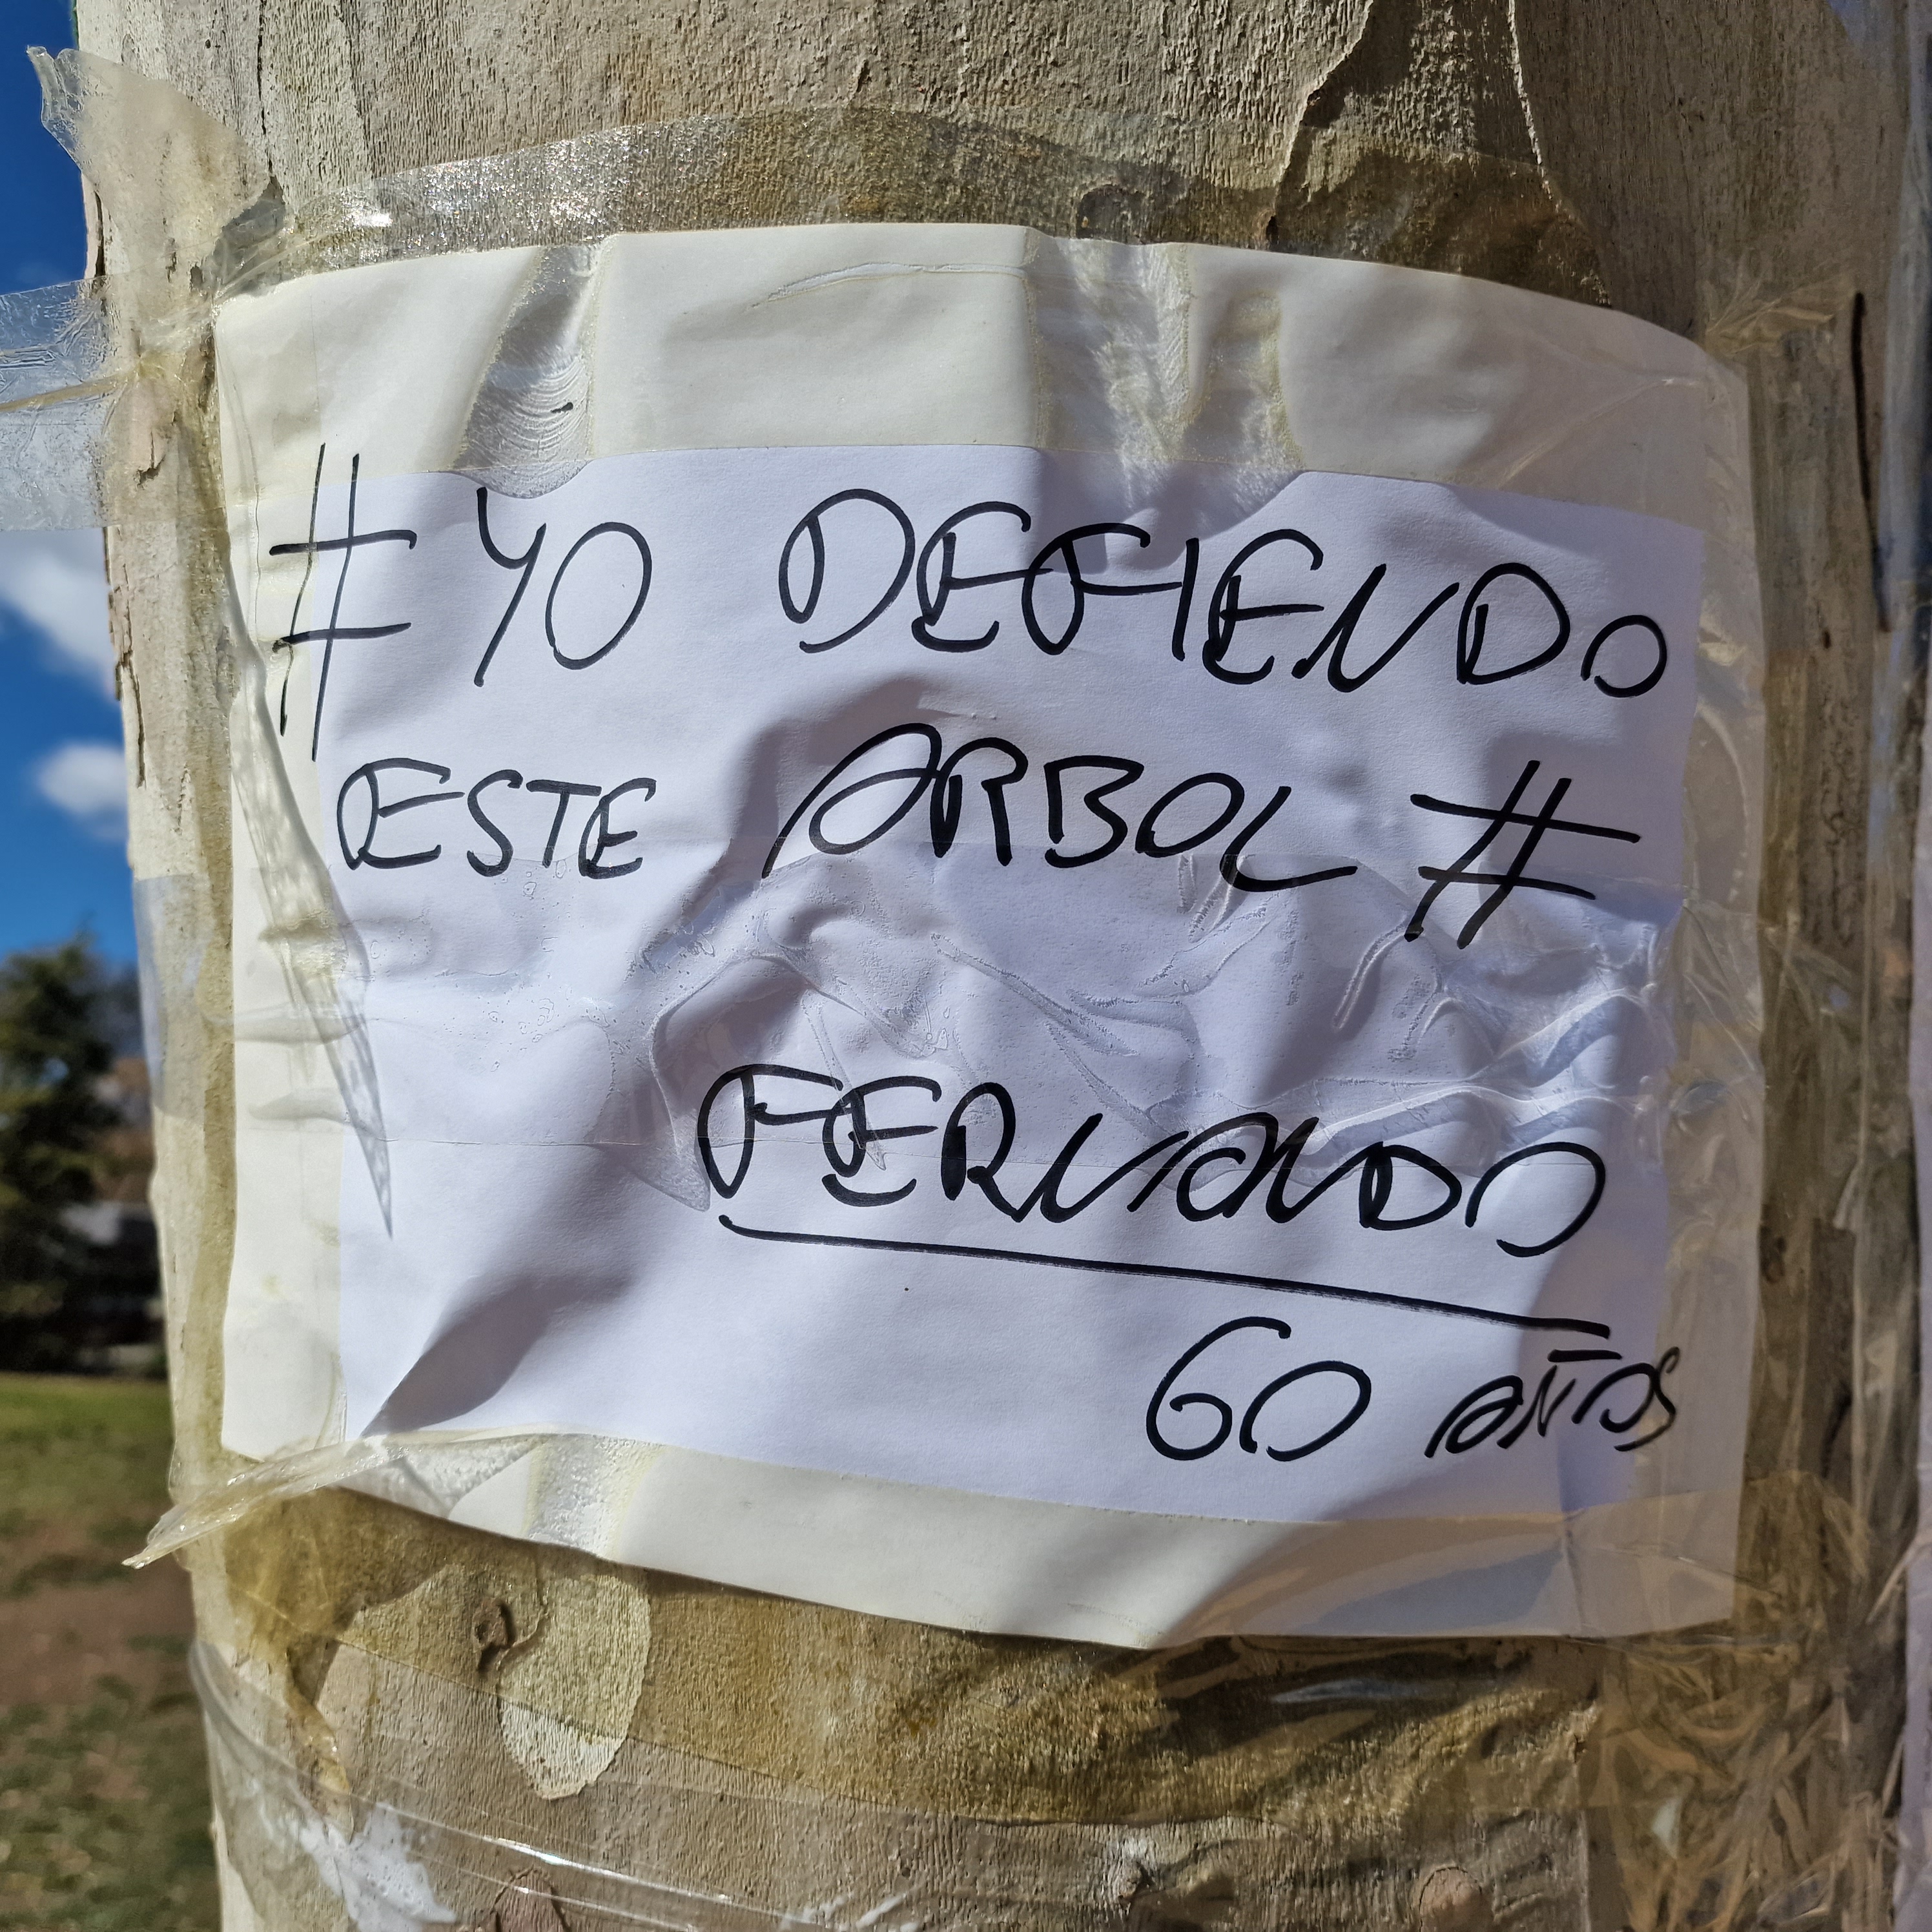 # YO DEFIENDO
ESTE ARBOL #
FERNANDO
60 AÑOS